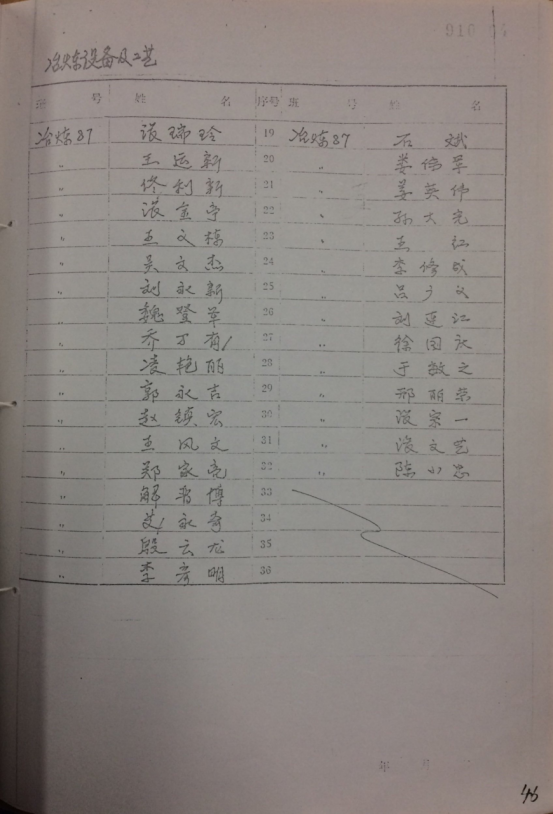 910
冶炼设备及工艺
班 号 姓 名 序号 班 号 姓 名
冶炼87 张瑞玲 19 冶炼87 石斌
〃 王运新 20 〃 娄俊革
〃 佟利新 21 〃 姜英伟
〃 张金亭 22 〃 孙大光
〃 王文栋 23 〃 王红
〃 吴文杰 24 〃 李修成
〃 刘永新 25 〃 吕广义
〃 魏登革 26 〃 刘连江
〃 乔丁有 27 〃 徐国永
〃 凌艳丽 28 〃 于敬之
〃 郭永吉 29 〃 邢丽
〃 赵镇宏 30 〃 张宗一
〃 王凤文 31 〃 张文艺
〃 郑家亮 32 〃 陈小
〃 解普博 33
〃 艾永秀 34
〃 殷云龙 35
〃 李彦明 36
年 月
46